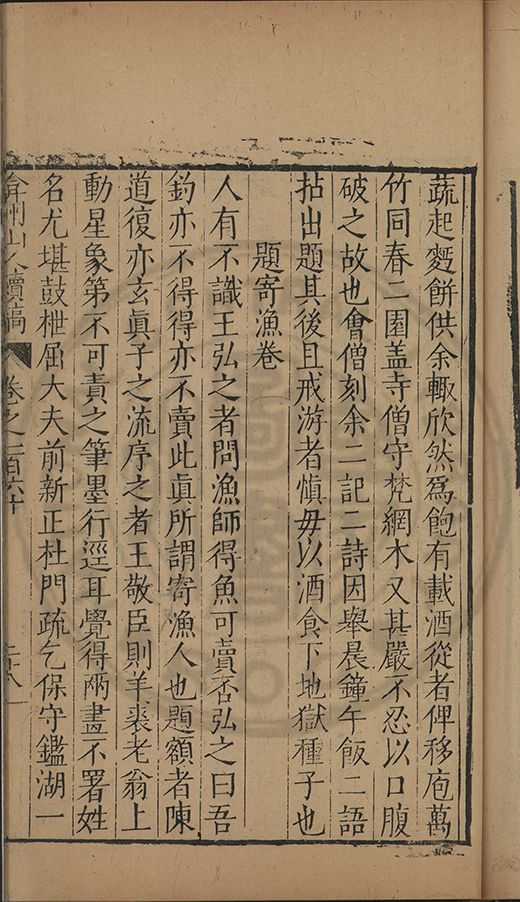 蔬起麪餅供余輙欣然爲飽有載酒從者俾移庖萬
竹同春二園盖寺僧守梵網木又甚嚴不忍以口腹
破之故也會僧刻余二記二詩因舉晨鐘午飯二語
拈出題其後且戒游者慎毋以酒食下地獄種子也
題寄漁卷
人有不識王弘之者問漁師得魚可賣否弘之曰吾
釣亦不得得亦不賣此眞所謂寄漁人也題額者陳
道復亦玄眞子之流序之者王敬臣則羊裘老翁上
動星象第不可責之筆墨行逕耳覺得兩畫不署姓
名尤堪鼓枻屈大夫前新正杜門疏乞保守鑑湖一
弇州山人續稿 卷之一百六十